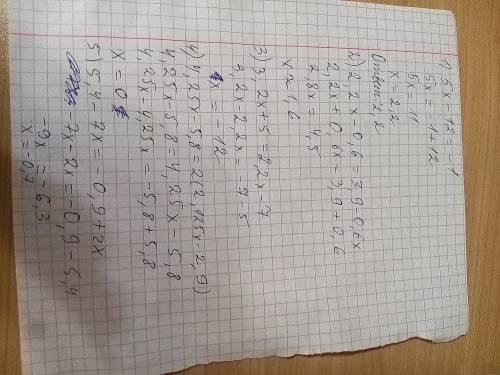 1) 5x - 12 = -1
5x = -1 + 12
5x = 11
x = 2,2
Ответ: 2,2
2) 2,2x - 0,6 = 3,9 - 0,6x
2,2x + 0,6x = 3,9 + 0,6
2,8x = 4,5
x ≈ 1,6
3) 3,2x + 5 = 2,2x - 7
3,2x - 2,2x = -7 - 5
x = -12
4) 4,25x - 5,8 = 2(2,125x - 2,9)
4,25x - 5,8 = 4,25x - 5,8
4,25x - 4,25x = -5,8 + 5,8
x = 0
5) 5,4 - 7x = -0,9 + 2x
-7x - 2x = -0,9 - 5,4
-9x = -6,3
x = 0,7